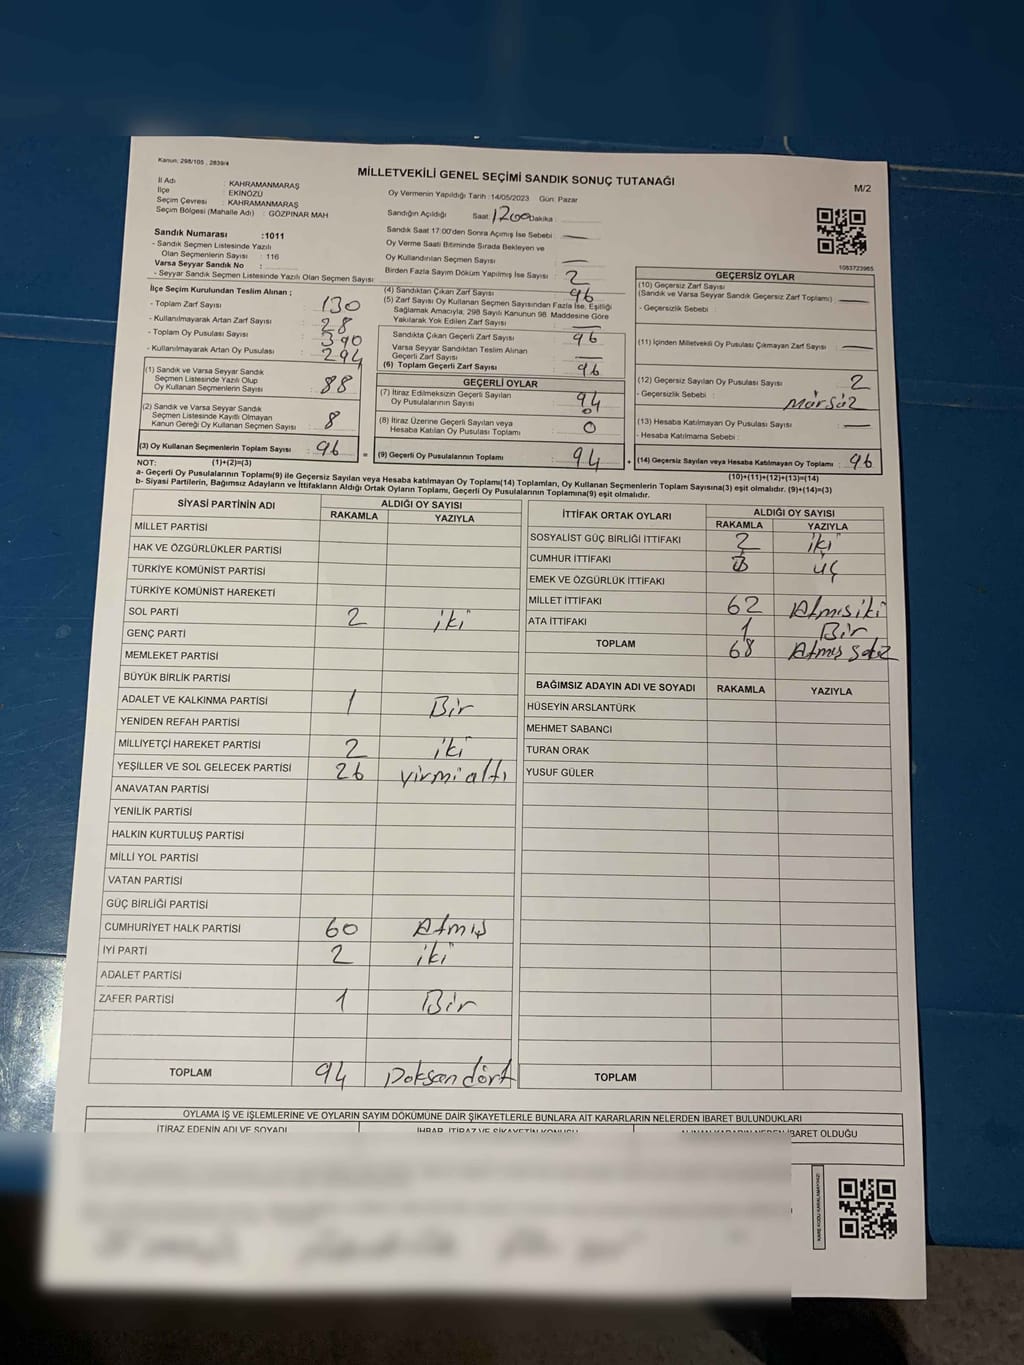 Kanun: 298/105 , 2839/4
MİLLETVEKİLİ GENEL SEÇİMİ SANDIK SONUÇ TUTANAĞI
M/2
İl Adı : KAHRAMANMARAŞ
İlçe : EKİNÖZÜ
Seçim Çevresi : KAHRAMANMARAŞ
Seçim Bölgesi (Mahalle Adı) : GÖZPINAR MAH
Sandık Numarası :1011
- Sandık Seçmen Listesinde Yazılı
Olan Seçmenlerin Sayısı : 116
Varsa Seyyar Sandık No :
- Seyyar Sandık Seçmen Listesinde Yazılı Olan Seçmen Sayısı :
Oy Vermenin Yapıldığı Tarih :14/05/2023 Gün: Pazar
Sandığın Açıldığı Saat: 1700 Dakika :
Sandık Saat 17:00'den Sonra Açılmış İse Sebebi :
Oy Verme Saati Bitiminde Sırada Bekleyen ve
Oy Kullandırılan Seçmen Sayısı :
Birden Fazla Sayım Döküm Yapılmış İse Sayısı : 2
1083723965
İlçe Seçim Kurulundan Teslim Alınan ;
- Toplam Zarf Sayısı : 130
- Kullanılmayarak Artan Zarf Sayısı : 28
- Toplam Oy Pusulası Sayısı : 390
- Kullanılmayarak Artan Oy Pusulası : 294
(1) Sandık ve Varsa Seyyar Sandık
Seçmen Listesinde Yazılı Olup
Oy Kullanan Seçmenlerin Sayısı : 88
(2) Sandık ve Varsa Seyyar Sandık
Seçmen Listesinde Kayıtlı Olmayan
Kanun Gereği Oy Kullanan Seçmen Sayısı : 8
(3) Oy Kullanan Seçmenlerin Toplam Sayısı : 96
(1)+(2)=(3)
(4) Sandıktan Çıkan Zarf Sayısı : 96
(5) Zarf Sayısı Oy Kullanan Seçmen Sayısından Fazla İse, Eşitliği
Sağlamak Amacıyla; 298 Sayılı Kanunun 98. Maddesine Göre
Yakılarak Yok Edilen Zarf Sayısı :
Sandıkta Çıkan Geçerli Zarf Sayısı : 96
Varsa Seyyar Sandıktan Teslim Alınan
Geçerli Zarf Sayısı :
(6) Toplam Geçerli Zarf Sayısı : 96
GEÇERLİ OYLAR
(7) İtiraz Edilmeksizin Geçerli Sayılan
Oy Pusulalarının Sayısı : 94
(8) İtiraz Üzerine Geçerli Sayılan veya
Hesaba Katılan Oy Pusulası Toplamı : 0
= (9) Geçerli Oy Pusulalarının Toplamı : 94
GEÇERSİZ OYLAR
(10) Geçersiz Zarf Sayısı
(Sandık ve Varsa Seyyar Sandık Geçersiz Zarf Toplamı) :
- Geçersizlik Sebebi :
(11) İçinden Milletvekili Oy Pusulası Çıkmayan Zarf Sayısı :
(12) Geçersiz Sayılan Oy Pusulası Sayısı : 2
- Geçersizlik Sebebi : Mürsüz
(13) Hesaba Katılmayan Oy Pusulası Sayısı :
- Hesaba Katılmama Sebebi :
+ (14) Geçersiz Sayılan veya Hesaba Katılmayan Oy Toplamı : 96
(10)+(11)+(12)+(13)=(14)
NOT:
a- Geçerli Oy Pusulalarının Toplamı(9) ile Geçersiz Sayılan veya Hesaba Katılmayan Oy Toplamı(14) Toplamları, Oy Kullanan Seçmenlerin Toplam Sayısına(3) eşit olmalıdır. (9)+(14)=(3)
b- Siyasi Partilerin, Bağımsız Adayların ve İttifakların Aldığı Ortak Oyların Toplamı, Geçerli Oy Pusulalarının Toplamına(9) eşit olmalıdır.
SİYASİ PARTİNİN ADI ALDIĞI OY SAYISI
RAKAMLA YAZIYLA
MİLLET PARTİSİ
HAK VE ÖZGÜRLÜKLER PARTİSİ
TÜRKİYE KOMÜNİST PARTİSİ
TÜRKİYE KOMÜNİST HAREKETİ
SOL PARTİ 2 iki
GENÇ PARTİ
MEMLEKET PARTİSİ
BÜYÜK BİRLİK PARTİSİ
ADALET VE KALKINMA PARTİSİ 1 Bir
YENİDEN REFAH PARTİSİ
MİLLİYETÇİ HAREKET PARTİSİ 2 iki
YEŞİLLER VE SOL GELECEK PARTİSİ 26 yirmialtı
ANAVATAN PARTİSİ
YENİLİK PARTİSİ
HALKIN KURTULUŞ PARTİSİ
MİLLİ YOL PARTİSİ
VATAN PARTİSİ
GÜÇ BİRLİĞİ PARTİSİ
CUMHURİYET HALK PARTİSİ 60 Atmış
İYİ PARTİ 2 iki
ADALET PARTİSİ
ZAFER PARTİSİ 1 Bir
TOPLAM 94 Doksan dört
İTTİFAK ORTAK OYLARI ALDIĞI OY SAYISI
RAKAMLA YAZIYLA
SOSYALİST GÜÇ BİRLİĞİ İTTİFAKI 2 iki
CUMHUR İTTİFAKI 3 üç
EMEK VE ÖZGÜRLÜK İTTİFAKI
MİLLET İTTİFAKI 62 Atmışiki
ATA İTTİFAKI 1 Bir
TOPLAM 68 Atmış sekiz
BAĞIMSIZ ADAYIN ADI VE SOYADI RAKAMLA YAZIYLA
HÜSEYİN ARSLANTÜRK
MEHMET SABANCI
TURAN ORAK
YUSUF GÜLER
TOPLAM
OYLAMA İŞ VE İŞLEMLERİNE VE OYLARIN SAYIM DÖKÜMÜNE DAİR ŞİKAYETLERLE BUNLARA AİT KARARLARIN NELERDEN İBARET BULUNDUKLARI
İTİRAZ EDENİN ADI VE SOYADI
İHBAR, İTİRAZ VE ŞİKAYETİN KONUSU
ALINAN KARARIN NEDEN İBARET OLDUĞU
KARE KODU KARALAMAYINIZ!